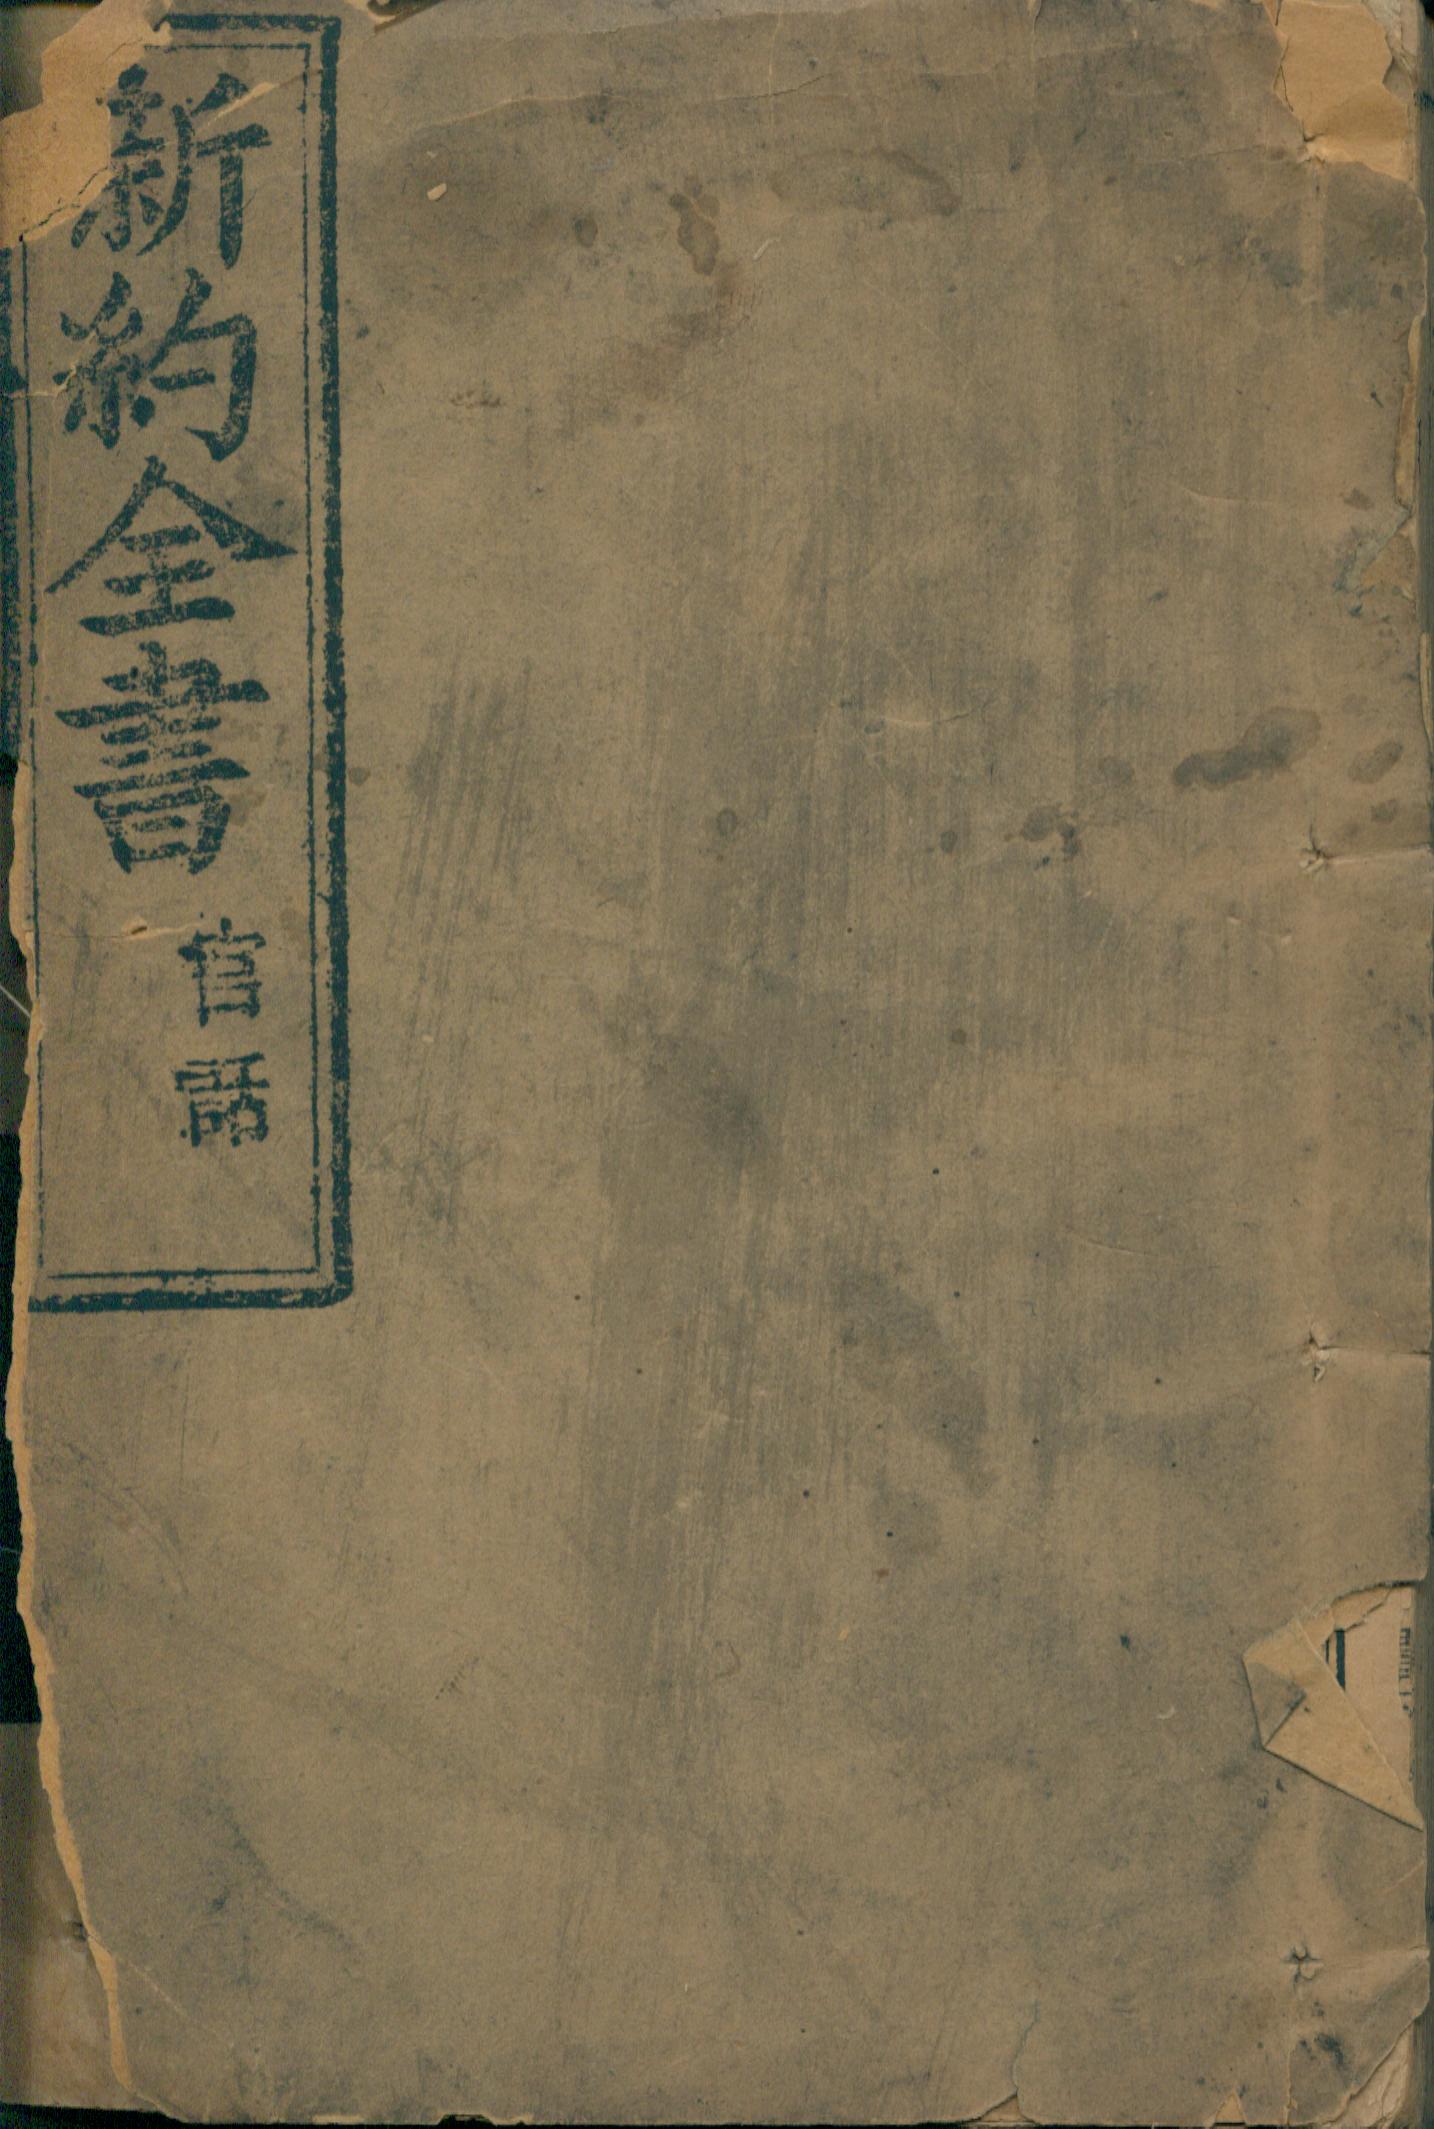 新約全書
官話